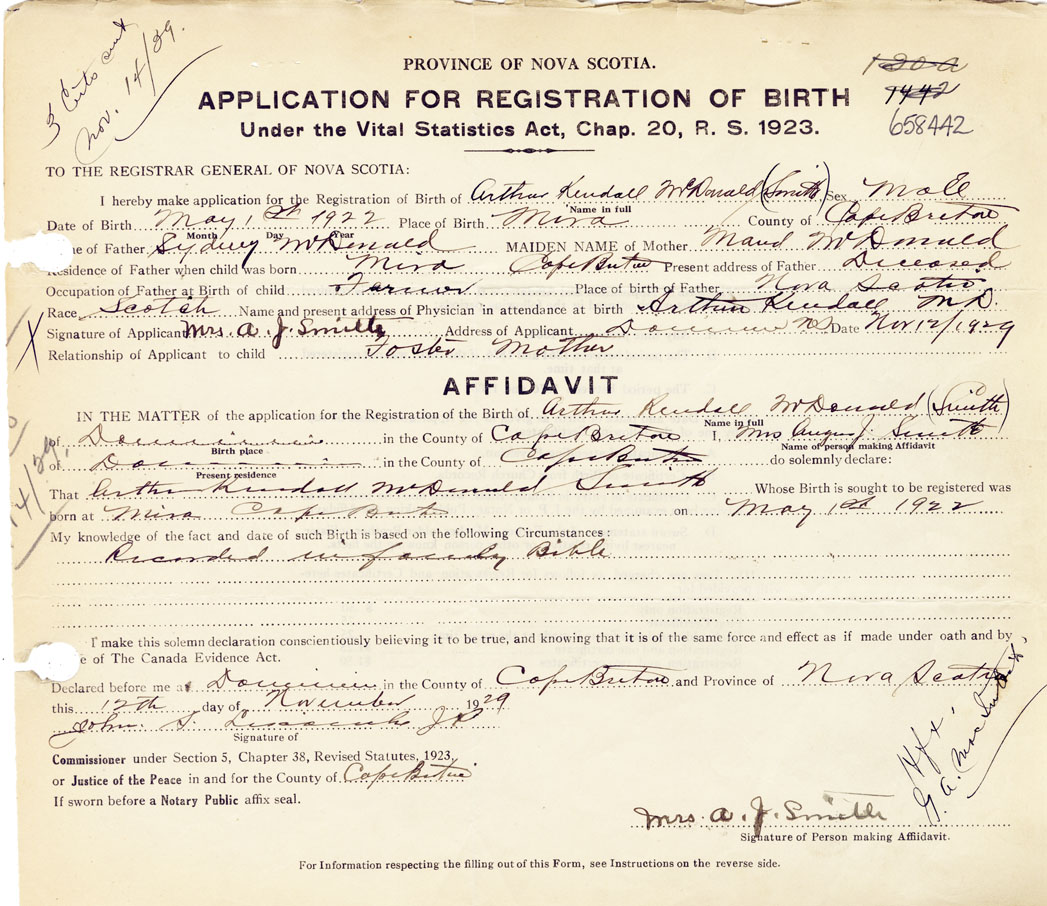 3 Certs sent
Nov. 14/29.
PROVINCE OF NOVA SCOTIA.
1442
658442
APPLICATION FOR REGISTRATION OF BIRTH
Under the Vital Statistics Act, Chap. 20, R. S. 1923.
TO THE REGISTRAR GENERAL OF NOVA SCOTIA:
I hereby make application for the Registration of Birth of Arthur Kendall McDonald (Smith) Sex Male
Name in full
Date of Birth May 1st 1922 Place of Birth Mira County of Cape Breton
Month Day Year
e of Father Sydney McDonald MAIDEN NAME of Mother Maud McDonald
Residence of Father when child was born Mira Cape Breton Present address of Father Diceased
Occupation of Father at Birth of child Farmer Place of birth of Father Nova Scotia
Race Scotch Name and present address of Physician in attendance at birth Arthur Kendall M.D.
X Signature of Applicant Mrs. A. J. Smith Address of Applicant Dominion N.S. Date Nov 12/1929
Relationship of Applicant to child Foster Mother
AFFIDAVIT
IN THE MATTER of the application for the Registration of the Birth of Arthur Kendall McDonald (Smith)
Name in full
of Dominion in the County of Cape Breton I, Mrs Angus J. Smith
Birth place Name of person making Affidavit
of Dominion in the County of Cape Breton do solemnly declare:
Present residence
That Arthur Kendall McDonald Smith Whose Birth is sought to be registered was
14/29.
born at Mira Cape Breton on May 1st 1922
My knowledge of the fact and date of such Birth is based on the following Circumstances:
Recorded in family Bible
I make this solemn declaration conscientiously believing it to be true, and knowing that it is of the same force and effect as if made under oath and by
e of The Canada Evidence Act.
Declared before me at Dominion in the County of Cape Breton and Province of Nova Scotia
this 12th day of November 1929
John S. J.P.
Signature of
Commissioner under Section 5, Chapter 38, Revised Statutes, 1923,
or Justice of the Peace in and for the County of Cape Breton
If sworn before a Notary Public affix seal.
Hfx,
G. A.
Mrs. A. J. Smith
Signature of Person making Affidavit.
For Information respecting the filling out of this Form, see Instructions on the reverse side.